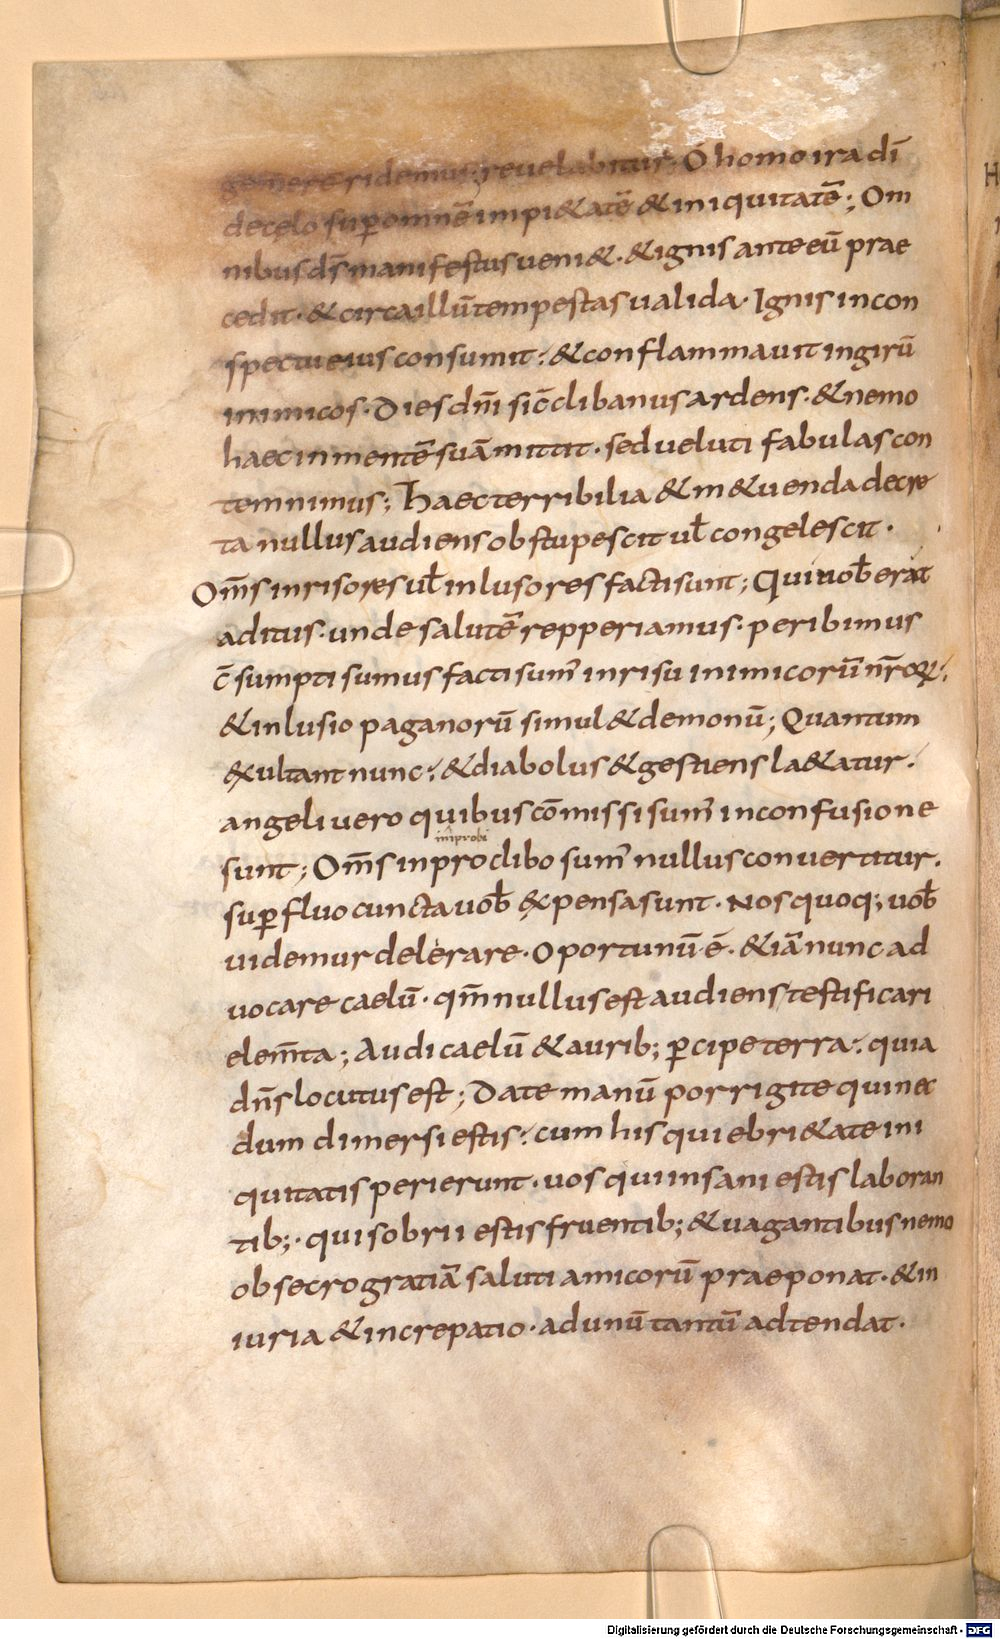 gemere ridemus; reuelabitur. O homo ira dī
de cęlo sup omnē impi&atē & iniquitatē; Om
nibus ds̄ manifestus ueni&. & ignis ante eū prae
cedit. & circa illū tempestas ualida. Ignis in con
spectu eius consumit. & conflammauit in girū
inimicos. Dies dn̄i sic̄ clibanus ardens. & nemo
haec in mentē suā mittit. sed ueluti fabulas con
temnimus; Haec terribilia & m&uenda decre
ta nullus audiens obstupescit ul̄ congelescit.
Om̄s inrisores ul̄ inlusores facti sunt; Qui nob̄ erat
aditus. unde salutē repperiamus. peribimus
c̄sumpti sumus facti sum' inrisu inimicorū nr̄oꝝ.
& inlusio paganorū simul & demonū; Quantum
exultant nunc. & diabolus & gestiens la&atur.
angeli uero quibus cōmissi sum' in confusione
im̄probi
sunt; Om̄s in proclibo sum' nullus conuertitur.
sup fluo cuncta uob̄ expensa sunt. Nos quoq; uob̄
uidemur delerare. Oportunū ē. & iā nunc ad
uocare caelū. qm̄ nullus est audiens testificari
elem̄ta; Audi caelū & aurib; p̄cipe terra. quia
dn̄s locutus est; Date manū porrigite qui nec
dum dimersi estis. cum his qui ebri&ate ini
quitatis perierunt. uos qui insani estis laboran
tib;. qui sobrii estis fruentib; & uagantibus nemo
obsecro gratiā saluti amicorū praeponat. & in
iuria & increpatio. ad unū tantū adtendat.
Digitalisierung gefördert durch die Deutsche Forschungsgemeinschaft - DFG